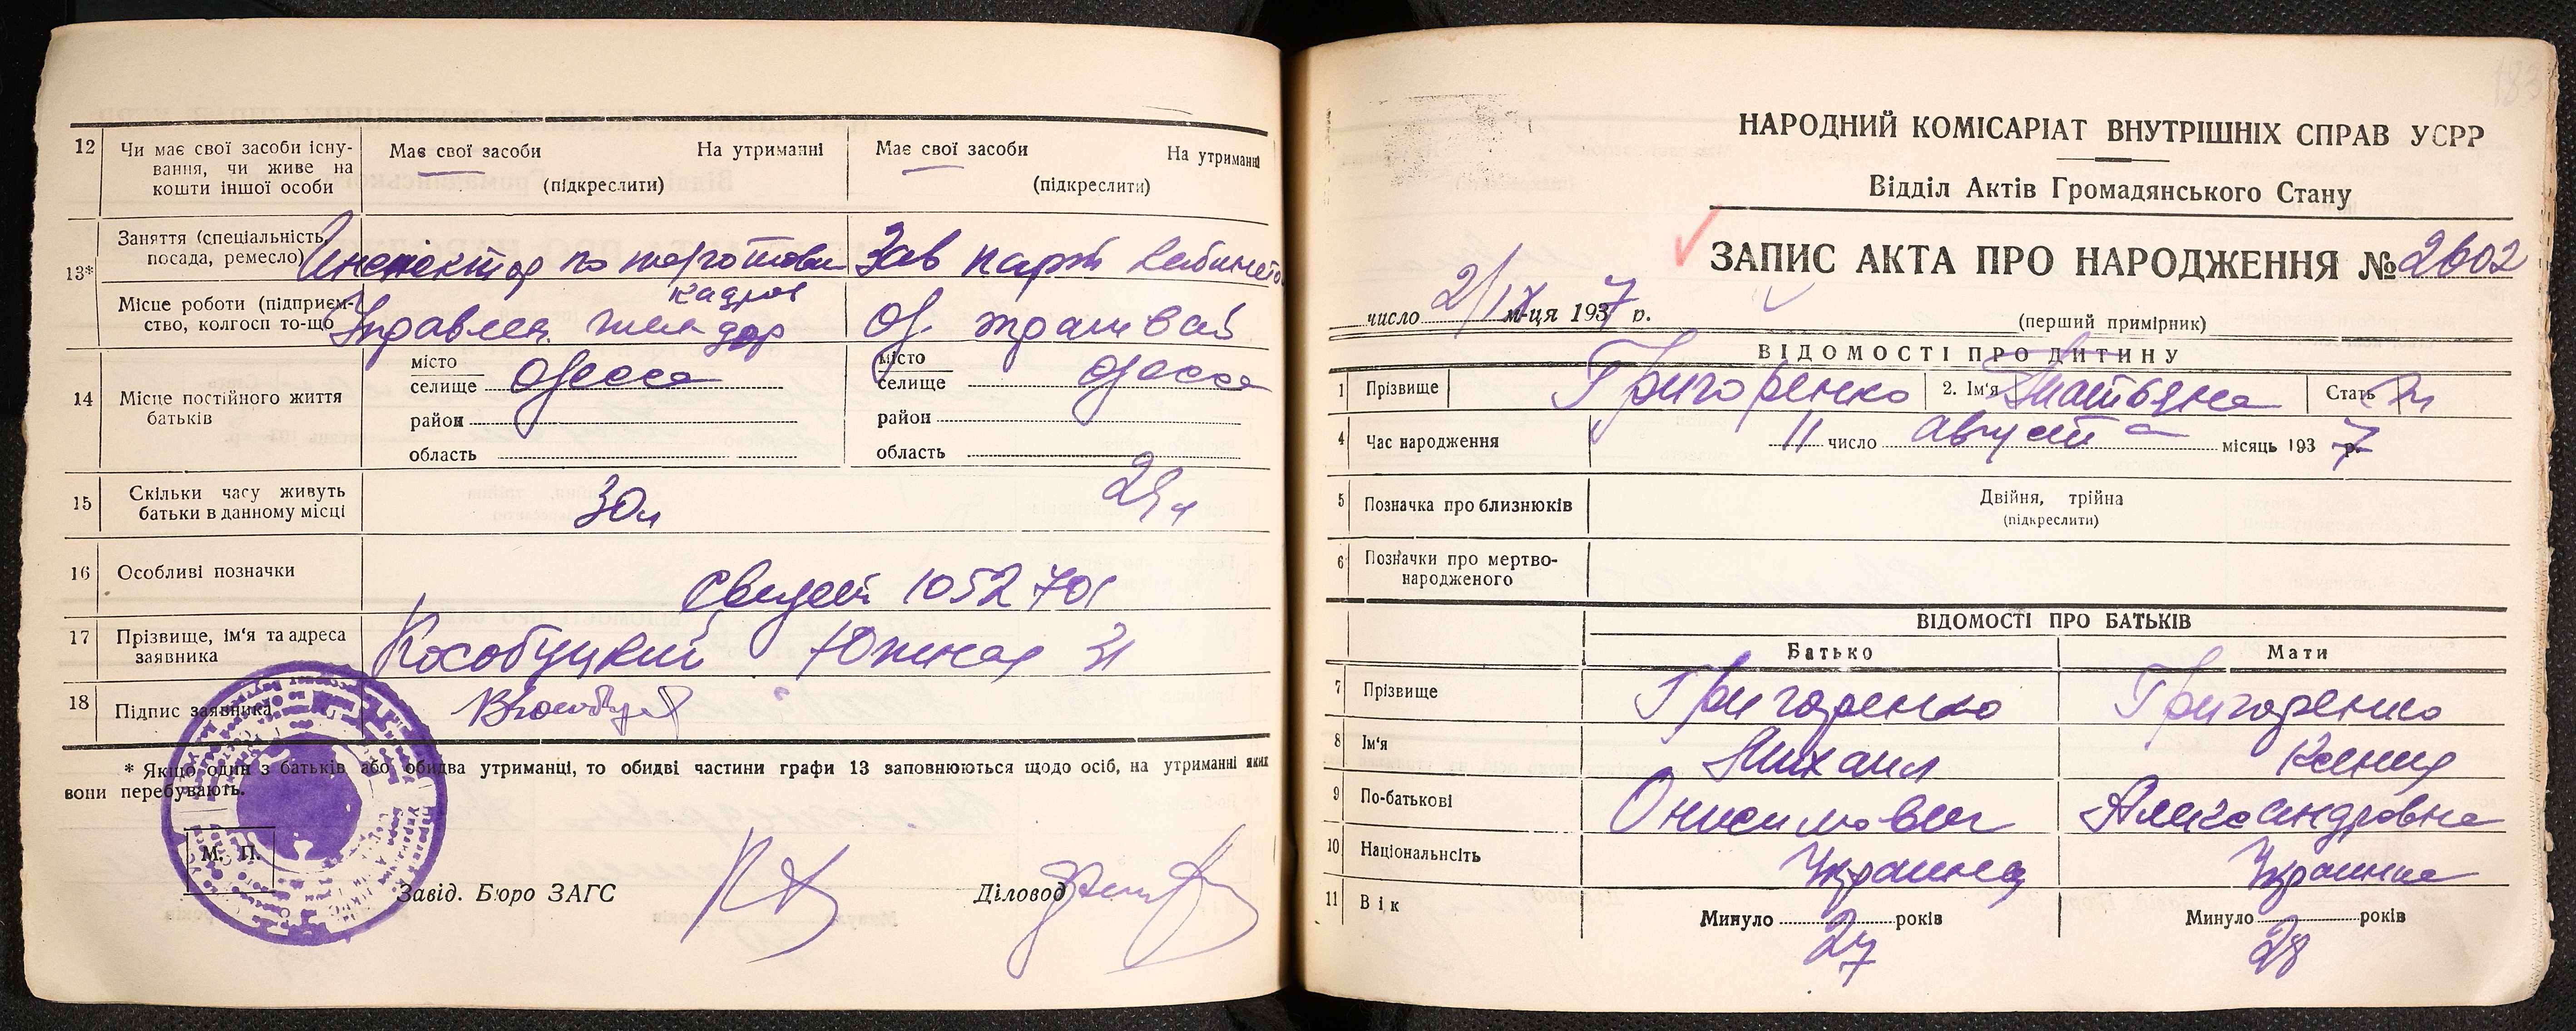 12 Чи має свої засоби існу-
вання, чи живе на
кошти іншої особи
Має свої засоби На утриманні
(підкреслити)
Має свої засоби На утриманні
(підкреслити)
13* Заняття (спеціальність,
посада, ремесло)
Инспектор по
кадров
Зав парт Кабинетом
Місце роботи (підприєм-
ство, колгосп то-що
Управлен. жел дор
Од. трамвай
14 Місце постійного життя
батьків
місто
селище Одесса
район
область
місто
селище Одесса
район
область
15 Скільки часу живуть
батьки в данному місці
30л
16 Особливі позначки
Свидет 1052701
17 Прізвище, ім'я та адреса
заявника
Кособуцкий Южная 31
18 Підпис заявника
* Якщо один з батьків або обидва утриманці, то обидві частини графи 13 заповнюються щодо осіб, на утриманні яких
вони перебувають.
М. П.
Завід. Бюро ЗАГС Діловод
183
НАРОДНИЙ КОМІСАРІАТ ВНУТРІШНІХ СПРАВ УСРР
Відділ Актів Громадянського Стану
ЗАПИС АКТА ПРО НАРОДЖЕННЯ № 2602
число 2/IX м-ця 1937 р.
(перший примірник)
ВІДОМОСТІ ПРО ДИТИНУ
1 Прізвище Григоренко 2. Ім'я Татьяна Стать
4 Час народження 11 число августа місяць 1937 р.
5 Позначка про близнюків Двійня, трійна
(підкреслити)
6 Позначки про мертво-
народженого
ВІДОМОСТІ ПРО БАТЬКІВ
Батько Мати
7 Прізвище Григоренко Григоренко
8 Ім'я Михаил Ксения
9 По-батькові Онисимович Александровна
10 Національнсіть Украинец Украинка
11 Вік Минуло 27 років Минуло 28 років